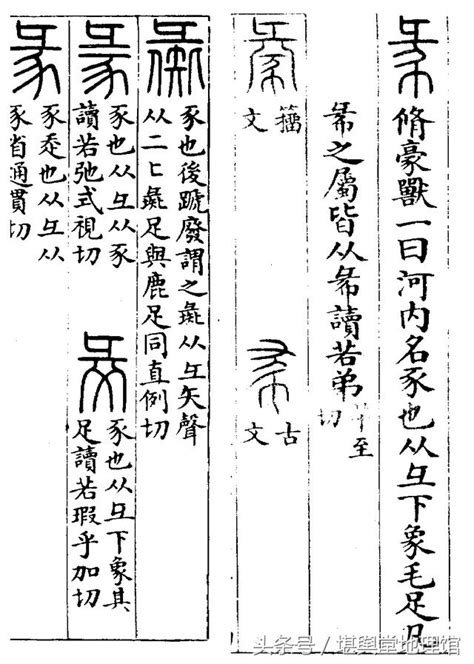 㣇脩豪獸一曰河內名豕也从彑下象毛足凡
㣇之屬皆从㣇讀若弟羊至切
籒文
古文
彘豕也後蹏廢謂之彘从彑矢聲
从二匕彘足與鹿足同直例切
豕也从彑从豕
讀若弛式視切
豕也从彑下象其
足讀若瑕乎加切
彖豕走也从彑从
豕省通貫切
头条号/堪舆堂地理馆